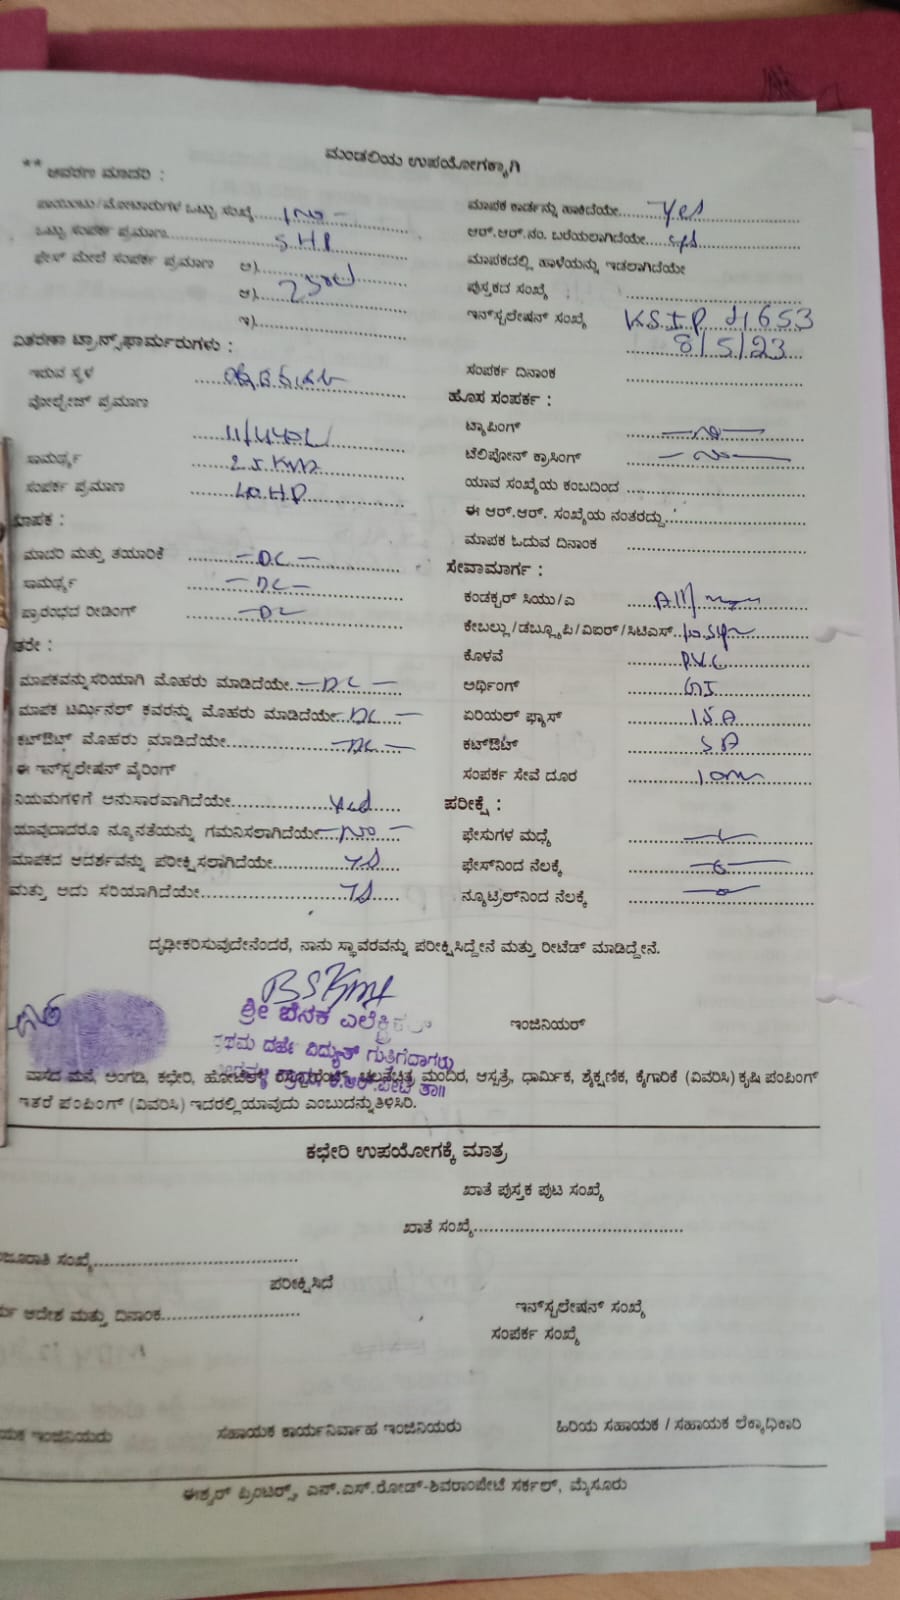 ಮಂಡಲಿಯ ಉಪಯೋಗಕ್ಕಾಗಿ
** ಆವರಣ ಮಾದರಿ :
ಪಾಯಿಂಟು/ಮೋಟಾರುಗಳ ಒಟ್ಟು ಸಂಖ್ಯೆ 1 No -
ಒಟ್ಟು ಸಂಪರ್ಕ ಪ್ರಮಾಣ 5.H.P
ಫೇಸ್ ಮೇಲೆ ಸಂಪರ್ಕ ಪ್ರಮಾಣ ಅ)
ಆ)
ಇ)
ವಿತರಣಾ ಟ್ರಾನ್ಸ್‌ಫಾರ್ಮರುಗಳು :
ಇರುವ ಸ್ಥಳ
ವೋಲ್ಟೇಜ್ ಪ್ರಮಾಣ
ಸಾಮರ್ಥ್ಯ 25 KVA
ಸಂಪರ್ಕ ಪ್ರಮಾಣ 40.H.P
ಮಾಪಕ :
ಮಾದರಿ ಮತ್ತು ತಯಾರಿಕೆ - DC -
ಸಾಮರ್ಥ್ಯ - DC -
ಪ್ರಾರಂಭದ ರೀಡಿಂಗ್ - DC
ಮಾಪಕವನ್ನು ಸರಿಯಾಗಿ ಮೊಹರು ಮಾಡಿದೆಯೇ - DC -
ಮಾಪಕ ಟರ್ಮಿನಲ್ ಕವರನ್ನು ಮೊಹರು ಮಾಡಿದೆಯೇ - DC -
ಕಟ್‌ಔಟ್ ಮೊಹರು ಮಾಡಿದೆಯೇ - DC -
ಈ ಇನ್‌ಸ್ಟಲೇಷನ್ ವೈರಿಂಗ್
ನಿಯಮಗಳಿಗೆ ಅನುಸಾರವಾಗಿದೆಯೇ
ಯಾವುದಾದರೂ ನ್ಯೂನತೆಯನ್ನು ಗಮನಿಸಲಾಗಿದೆಯೇ - No -
ಮಾಪಕದ ಆದರ್ಶವನ್ನು ಪರೀಕ್ಷಿಸಲಾಗಿದೆಯೇ
ಮತ್ತು ಅದು ಸರಿಯಾಗಿದೆಯೇ
ಮಾಪಕ ಕಾರ್ಡನ್ನು ಹಾಕಿದೆಯೇ Yes
ಆರ್.ಆರ್.ನಂ. ಬರೆಯಲಾಗಿದೆಯೇ
ಮಾಪಕದಲ್ಲಿ ಹಾಳೆಯನ್ನು ಇಡಲಾಗಿದೆಯೇ
ಪುಸ್ತಕದ ಸಂಖ್ಯೆ
ಇನ್‌ಸ್ಟಲೇಷನ್ ಸಂಖ್ಯೆ KSIP 41653
8/5/23
ಸಂಪರ್ಕ ದಿನಾಂಕ
ಹೊಸ ಸಂಪರ್ಕ :
ಟ್ಯಾಪಿಂಗ್ - No -
ಟೆಲಿಪೋನ್ ಕ್ರಾಸಿಂಗ್ - No -
ಯಾವ ಸಂಖ್ಯೆಯ ಕಂಬದಿಂದ
ಈ ಆರ್.ಆರ್. ಸಂಖ್ಯೆಯ ನಂತರದ್ದು
ಮಾಪಕ ಓದುವ ದಿನಾಂಕ
ಸೇವಾಮಾರ್ಗ :
ಕಂಡಕ್ಟರ್ ಸಿಯು/ಎ
ಕೇಬಲ್ಲು/ಡಬ್ಲ್ಯೂಪಿ/ವಿಐರ್/ಸಿಟಿಎಸ್
ಕೊಳವೆ P.V.C
ಅರ್ಥಿಂಗ್ GI
ಏರಿಯಲ್ ಫ್ಯೂಸ್ 15 A
ಕಟ್‌ಔಟ್ 5 A
ಸಂಪರ್ಕ ಸೇವೆ ದೂರ 10m
ಪರೀಕ್ಷೆ :
ಫೇಸುಗಳ ಮಧ್ಯೆ
ಫೇಸ್‌ನಿಂದ ನೆಲಕ್ಕೆ
ನ್ಯೂಟ್ರಲ್‌ನಿಂದ ನೆಲಕ್ಕೆ
ದೃಢೀಕರಿಸುವುದೇನೆಂದರೆ, ನಾನು ಸ್ಥಾವರವನ್ನು ಪರೀಕ್ಷಿಸಿದ್ದೇನೆ ಮತ್ತು ರೀಟೆಡ್ ಮಾಡಿದ್ದೇನೆ.
ಶ್ರೀ ಬೆನಕ ಎಲೆಕ್ಟ್ರಿಕಲ್
ಇಂಜಿನಿಯರ್
ಪ್ರಥಮ ದರ್ಜೆ ವಿದ್ಯುತ್ ಗುತ್ತಿಗೆದಾರರು
ಕೆ.ಆರ್.ಪೇಟೆ ತಾ॥
ವಾಸದ ಮನೆ, ಅಂಗಡಿ, ಕಛೇರಿ, ಹೋಟೆಲ್, ರೆಸ್ಟೋರೆಂಟ್, ಚಲನಚಿತ್ರ ಮಂದಿರ, ಆಸ್ಪತ್ರೆ, ಧಾರ್ಮಿಕ, ಶೈಕ್ಷಣಿಕ, ಕೈಗಾರಿಕೆ (ವಿವರಿಸಿ) ಕೃಷಿ ಪಂಪಿಂಗ್
ಇತರೆ ಪಂಪಿಂಗ್ (ವಿವರಿಸಿ) ಇದರಲ್ಲಿ ಯಾವುದು ಎಂಬುದನ್ನು ತಿಳಿಸಿರಿ.
ಕಛೇರಿ ಉಪಯೋಗಕ್ಕೆ ಮಾತ್ರ
ಖಾತೆ ಪುಸ್ತಕ ಪುಟ ಸಂಖ್ಯೆ
ಖಾತೆ ಸಂಖ್ಯೆ
ಸಂಖ್ಯೆ
ಪರೀಕ್ಷಿಸಿದೆ
ಆದೇಶ ಮತ್ತು ದಿನಾಂಕ
ಇನ್‌ಸ್ಟಲೇಷನ್ ಸಂಖ್ಯೆ
ಸಂಪರ್ಕ ಸಂಖ್ಯೆ
ಇಂಜಿನಿಯರು ಸಹಾಯಕ ಕಾರ್ಯನಿರ್ವಾಹ ಇಂಜಿನಿಯರು ಹಿರಿಯ ಸಹಾಯಕ / ಸಹಾಯಕ ಲೆಕ್ಕಾಧಿಕಾರಿ
ಈಶ್ವರ್ ಪ್ರಿಂಟರ್ಸ್, ಎನ್.ಎಸ್.ರೋಡ್-ಶಿವರಾಂಪೇಟೆ ಸರ್ಕಲ್, ಮೈಸೂರು